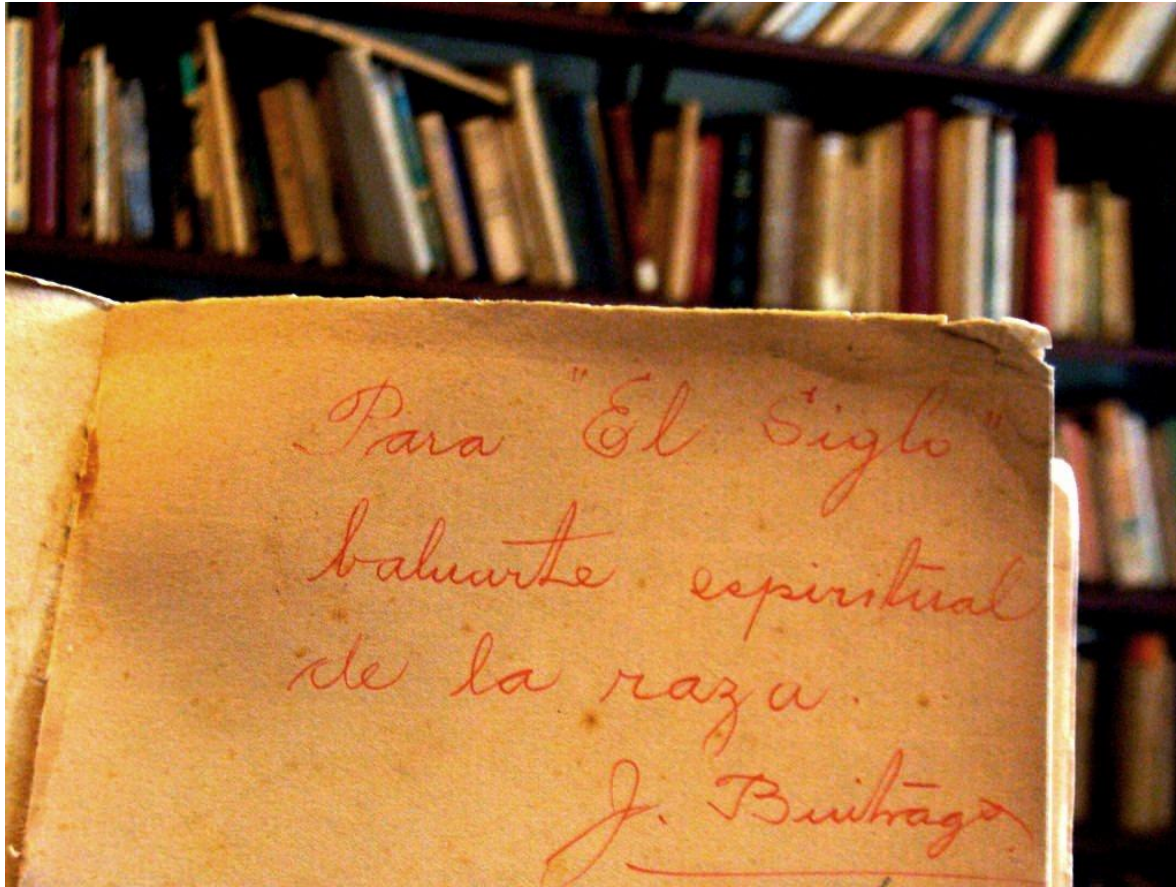 Para "El Siglo"
baluarte espiritual
de la raza.
J. Buitrago